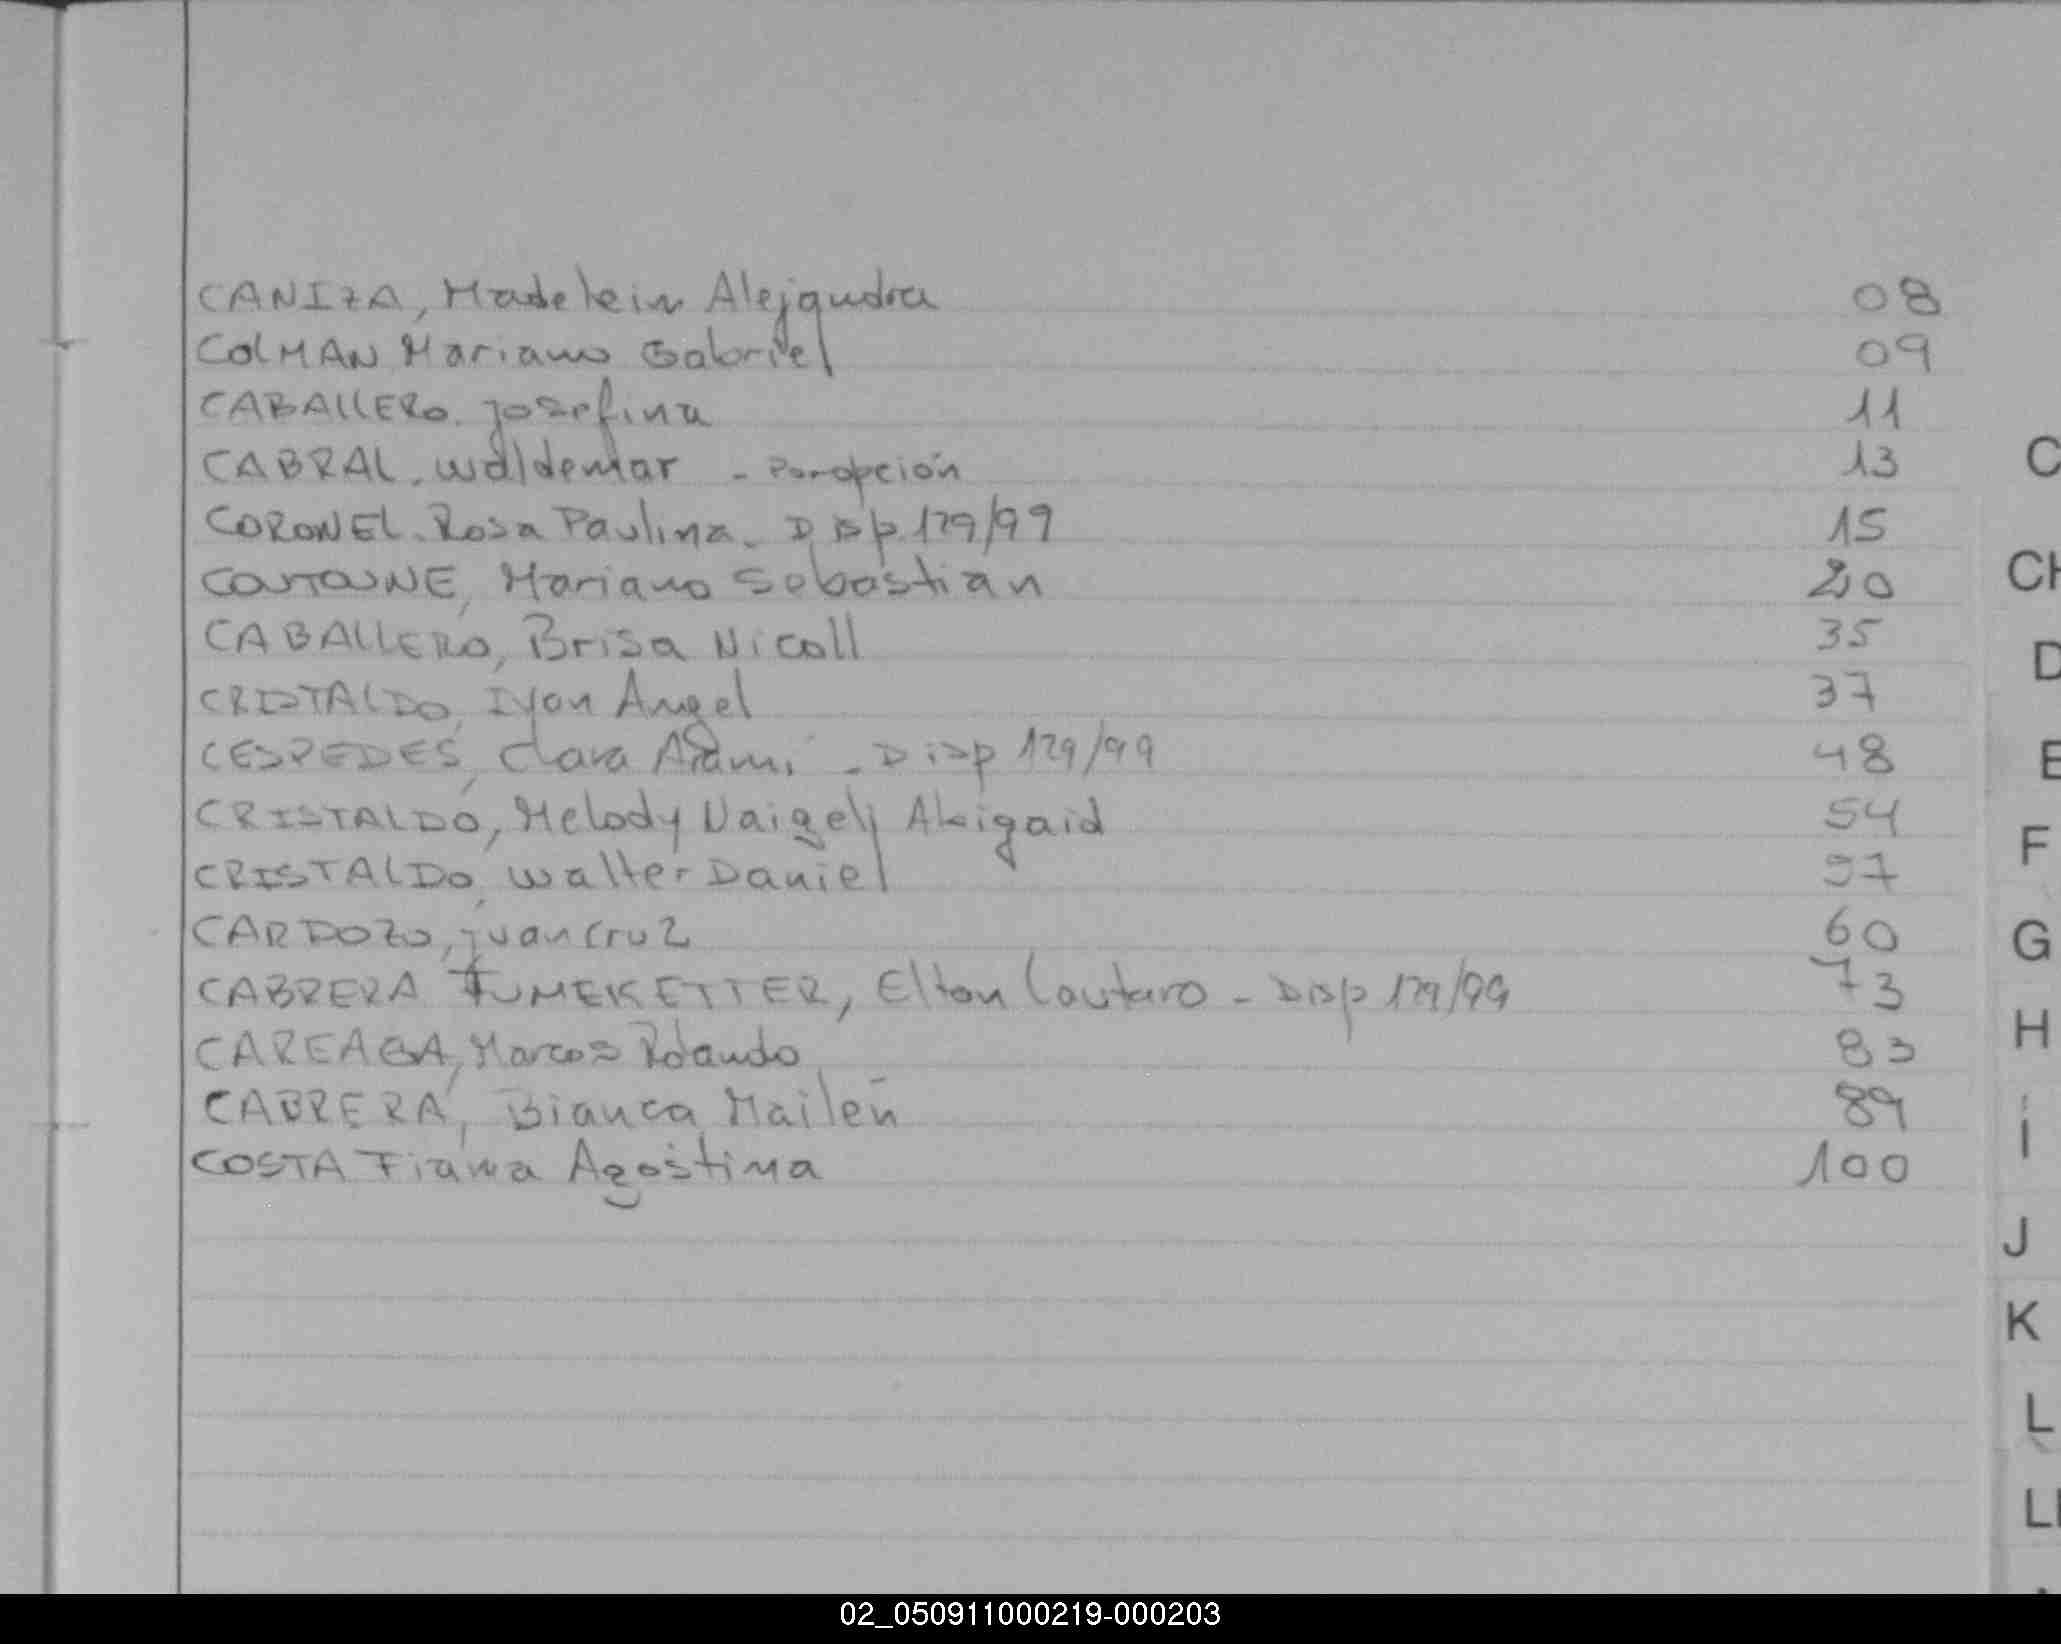 CANIZA, Madelein Alejandra 08
COLMAN Mariano Gabriel 09
CABALLERO. Josefina 11
CABRAL. Waldemar - Por opción 13
CORONEL. Rosa Paulina - Disp 179/99 15
Mariano Sebastian 20
CABALLERO, Brisa Nicoll 35
CRISTALDO, Ivan Angel 37
CESPEDES, Clara - Disp 179/99 48
CRISTALDO, Melody Abigaid 54
CRISTALDO, Walter Daniel 57
CARDOZO, Juan Cruz 60
CABRERA Elton Lautaro - Disp 179/99 73
CAREAGA, Marcos Rolando 83
CABRERA, Bianca Mailén 89
COSTA Fiama Agostina 100
C
CH
D
E
F
G
H
I
J
K
L
LL
02_050911000219-000203